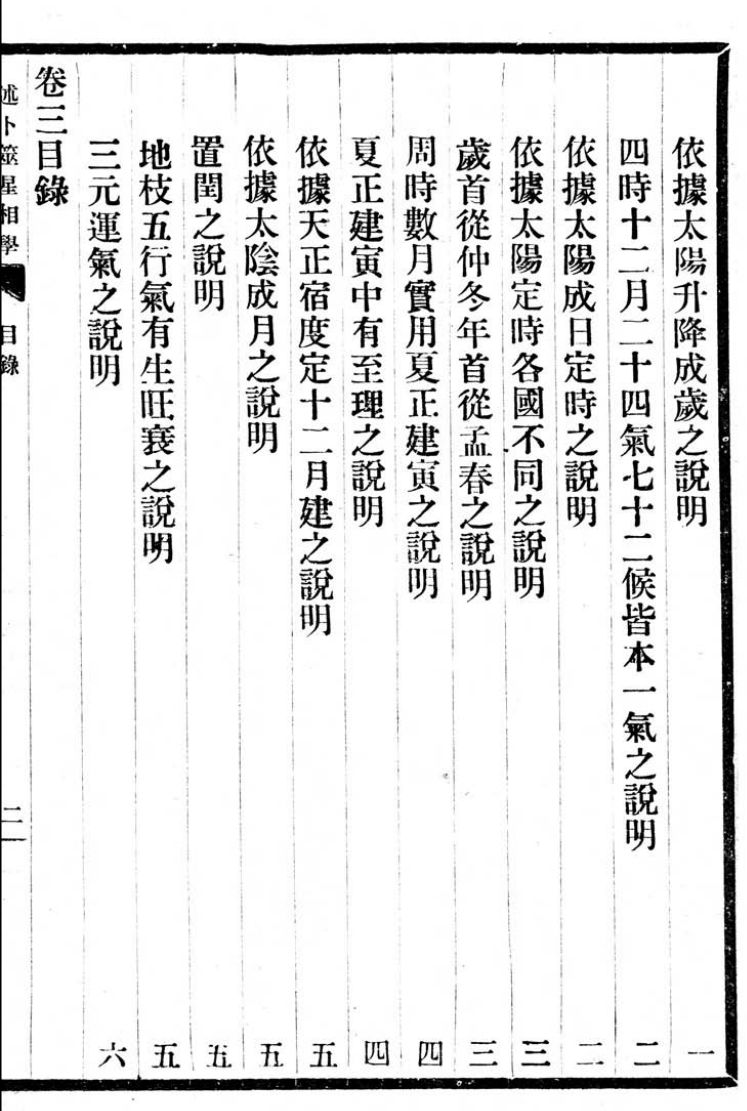 依據太陽升降成歲之說明 一
四時十二月二十四氣七十二候皆本一氣之說明 二
依據太陽成日定時之說明 二
依據太陽定時各國不同之說明 三
歲首從仲冬年首從孟春之說明 三
周時數月實用夏正建寅之說明 四
夏正建寅中有至理之說明 四
依據天正宿度定十二月建之說明 五
依據太陰成月之說明 五
置閏之說明 五
地枝五行氣有生旺衰之說明 五
三元運氣之說明 六
卷三目錄
述卜筮星相學 目錄 二